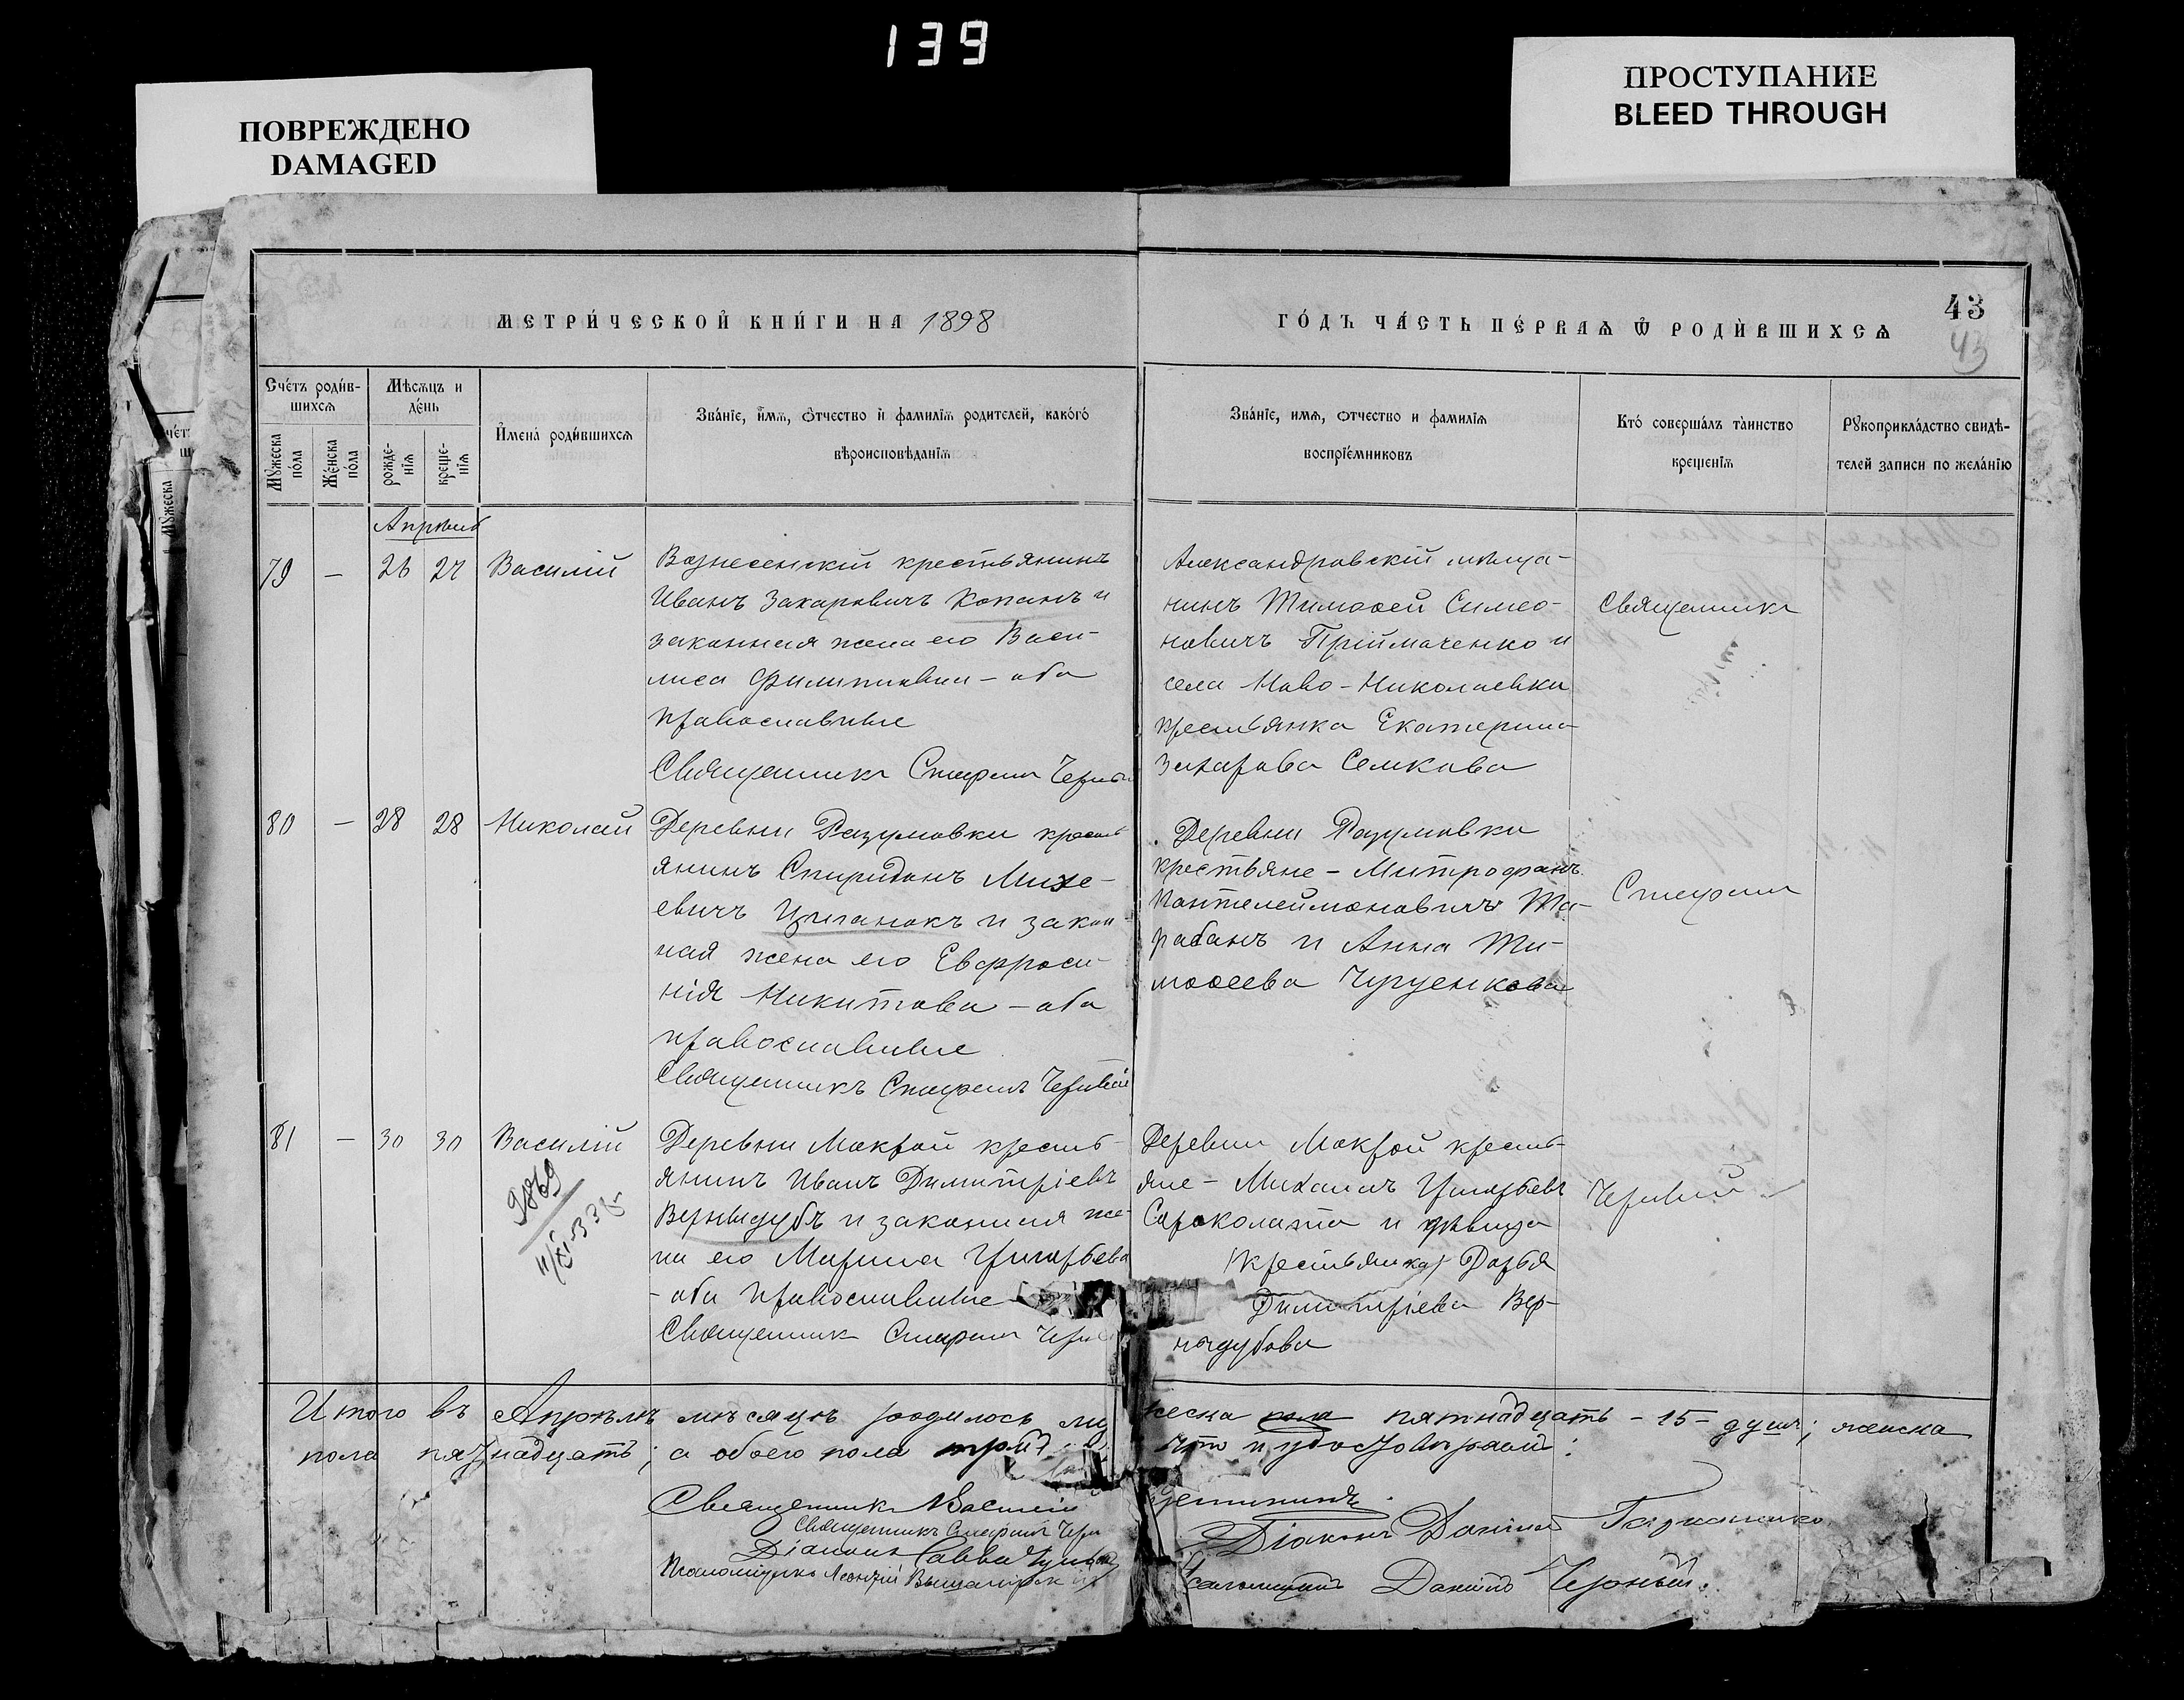 139
ПОВРЕЖДЕНО
DAMAGED
ПРОСТУПАНИЕ
BLEED THROUGH
МЕТРИ́ЧЕСКОЙ КНИ́ГИ НА 1898
ГО́ДЪ ЧА́СТЬ ПЕ́РВАѦ Ѡ҆ РОДИ́ВШИХСѦ
43
43
Счéтъ роди́в-
шихсѧ
Мꙋжеска
по́ла
Же́нска
по́ла
Мѣсѧцъ и
де́нь
рожде-
нїѧ
креще-
нїѧ
И҆мена̀ роди́вшихсѧ
Зва́нїе, и҆́мѧ, ѻ҆́тчество и҆ фамилїѧ родителей, како́гѡ
вѣроисповѣданїѧ
Зва́нїе, имѧ, ѻтчество и фамилїѧ
воспрїе́мниковъ
Кто́ соверша́лъ та̀инство
крещенїѧ
Рꙋкоприкла́дство свидѣ-
телей записи по жела́нїю
Апрѣль
79 — 26 27 Василій
Вознесенскій крестьянинъ
Иванъ Захаровичъ Копанъ и
законная жена его Васи-
лиса Филиппова - оба
православные
Священникъ Стефанъ Черный
Александровскій мѣща-
нинъ Тимофей Симео-
новичъ Прiймаченко и
села Ново-Николаевки
крестьянка Екатерина
Захарова Семкова
Священникъ
80 — 28 28 Николай
Деревни Разумовки кресть
янинъ Спиридонъ Михе-
евичъ Цыганокъ и закон-
ная жена его Евфроси-
нія Никитова - оба
православные
Священникъ Стефанъ Черный
Деревни Разумовки
крестьяне - Митрофанъ
Пантелеймоновичъ Та-
рабанъ и Анна Ти-
мофеева Чугуенкова
Стефанъ
81 — 30 30 Василій
9869
11/XI-33
Деревни Мокрой кресть-
янинъ Иванъ Димитріевъ
Вернидубъ и законная же-
на его Марина Григорьева
- оба православные
Священникъ Стефанъ Чер
Деревни Мокрой кресть-
яне - Михаилъ Григорьевъ
Сороколата и дѣвица
(крестьянка) Дарья
Димитріева Вер-
нидубова
Черный
Итого въ Апрѣлѣ мѣсяцѣ родилось му
жеска пола пятнадцать - 15 - душъ; женска
пола пятнадцать; а обоего пола трид
что и удостовѣряемъ:
Священникъ Василій
Священникъ Стефанъ Чер
Діаконъ Савва
Псаломщикъ Леонтій
Діаконъ Даніилъ
Псаломщикъ Даніилъ Черный.